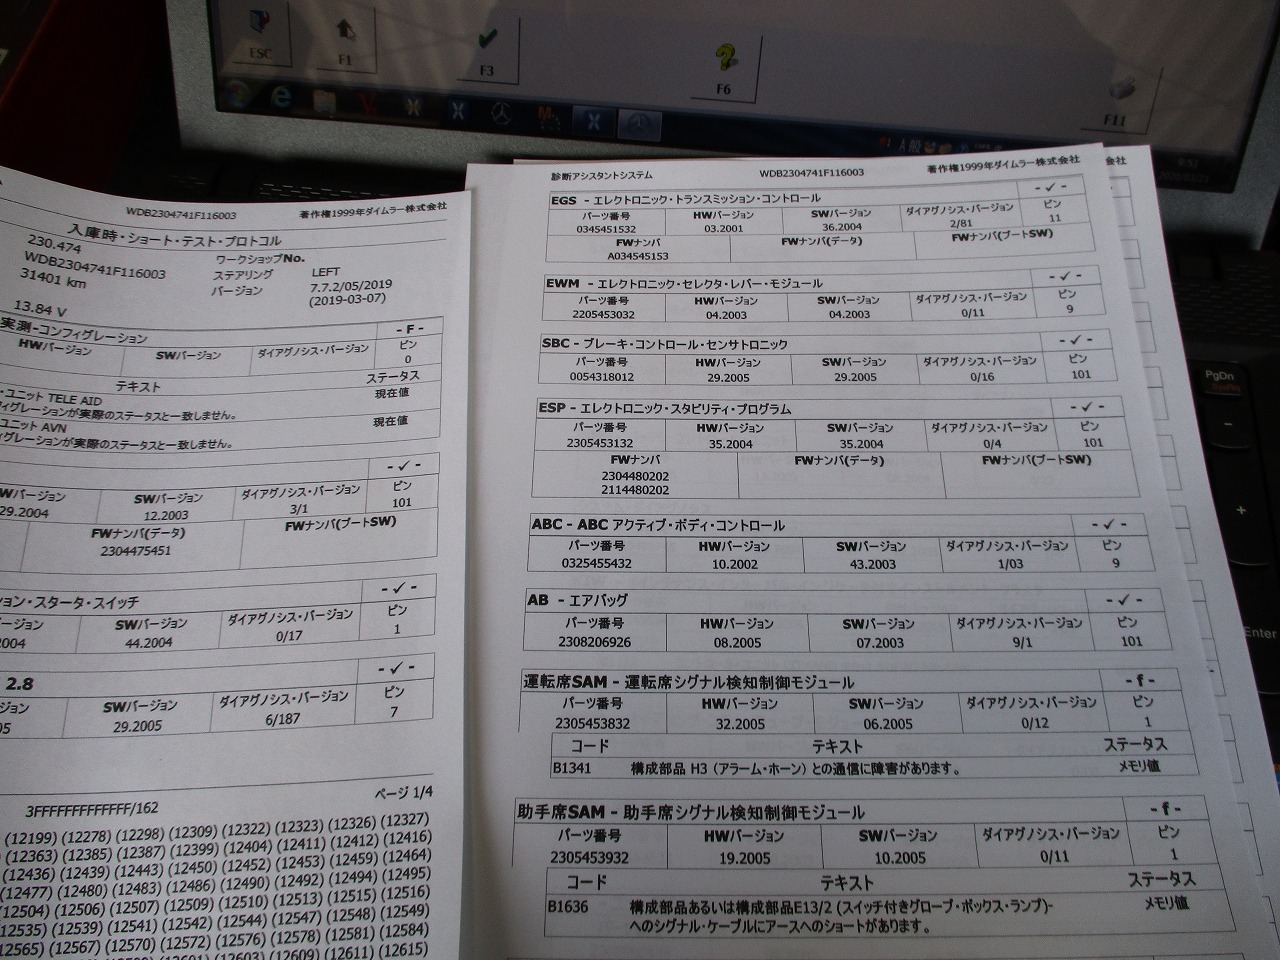 ESC
F1
F3
F6
F11
A 般
PgDn
Enter
WDB2304741F116003 著作権1999年ダイムラー株式会社
入庫時・ショート・テスト・プロトコル
230.474 ワークショップNo.
WDB2304741F116003 ステアリング LEFT
31401 km バージョン 7.7.2/05/2019
(2019-03-07)
13.84 V
実測-コンフィグレーション - F -
HWバージョン SWバージョン ダイアグノシス・バージョン ピン
0
テキスト ステータス
ユニット TELE AID 現在値
ィグレーションが実際のステータスと一致しません。
ユニット AVN 現在値
ィグレーションが実際のステータスと一致しません。
- ✓ -
Wバージョン SWバージョン ダイアグノシス・バージョン ピン
29.2004 12.2003 3/1 101
FWナンバ(データ) FWナンバ(ブートSW)
2304475451
ション・スタータ・スイッチ - ✓ -
ージョン SWバージョン ダイアグノシス・バージョン ピン
2004 44.2004 0/17 1
2.8 - ✓ -
ジョン SWバージョン ダイアグノシス・バージョン ピン
05 29.2005 6/187 7
ページ 1/4
3FFFFFFFFFFFFF/162
(12199) (12278) (12298) (12309) (12322) (12323) (12326) (12327)
(12363) (12385) (12387) (12399) (12404) (12411) (12412) (12416)
(12436) (12439) (12443) (12450) (12452) (12453) (12459) (12464)
(12477) (12480) (12483) (12486) (12490) (12492) (12494) (12495)
(12504) (12506) (12507) (12509) (12510) (12513) (12515) (12516)
(12535) (12539) (12541) (12542) (12544) (12547) (12548) (12549)
(12565) (12567) (12570) (12572) (12576) (12578) (12581) (12584)
(12603) (12609) (12611) (12615)
診断アシスタントシステム WDB2304741F116003 著作権1999年ダイムラー株式会社
EGS - エレクトロニック・トランスミッション・コントロール - ✓ -
パーツ番号 HWバージョン SWバージョン ダイアグノシス・バージョン ピン
0345451532 03.2001 36.2004 2/81 11
FWナンバ FWナンバ(データ) FWナンバ(ブートSW)
A034545153
EWM - エレクトロニック・セレクタ・レバー・モジュール - ✓ -
パーツ番号 HWバージョン SWバージョン ダイアグノシス・バージョン ピン
2205453032 04.2003 04.2003 0/11 9
SBC - ブレーキ・コントロール・センサトロニック - ✓ -
パーツ番号 HWバージョン SWバージョン ダイアグノシス・バージョン ピン
0054318012 29.2005 29.2005 0/16 101
ESP - エレクトロニック・スタビリティ・プログラム - ✓ -
パーツ番号 HWバージョン SWバージョン ダイアグノシス・バージョン ピン
2305453132 35.2004 35.2004 0/4 101
FWナンバ FWナンバ(データ) FWナンバ(ブートSW)
2304480202
2114480202
ABC - ABC アクティブ・ボディ・コントロール - ✓ -
パーツ番号 HWバージョン SWバージョン ダイアグノシス・バージョン ピン
0325455432 10.2002 43.2003 1/03 9
AB - エアバッグ - ✓ -
パーツ番号 HWバージョン SWバージョン ダイアグノシス・バージョン ピン
2308206926 08.2005 07.2003 9/1 101
運転席SAM - 運転席シグナル検知制御モジュール - f -
パーツ番号 HWバージョン SWバージョン ダイアグノシス・バージョン ピン
2305453832 32.2005 06.2005 0/12 1
コード テキスト ステータス
B1341 構成部品 H3 (アラーム・ホーン) との通信に障害があります。 メモリ値
助手席SAM - 助手席シグナル検知制御モジュール - f -
パーツ番号 HWバージョン SWバージョン ダイアグノシス・バージョン ピン
2305453932 19.2005 10.2005 0/11 1
コード テキスト ステータス
B1636 構成部品あるいは構成部品E13/2 (スイッチ付きグローブ・ボックス・ランプ)- メモリ値
へのシグナル・ケーブルにアースへのショートがあります。